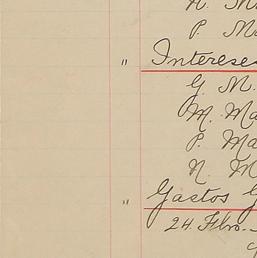 N. M
P. Ma
" Interese
G. M.
M. Ma
P. Ma
N. M
" Gastos G
24 Fbro.